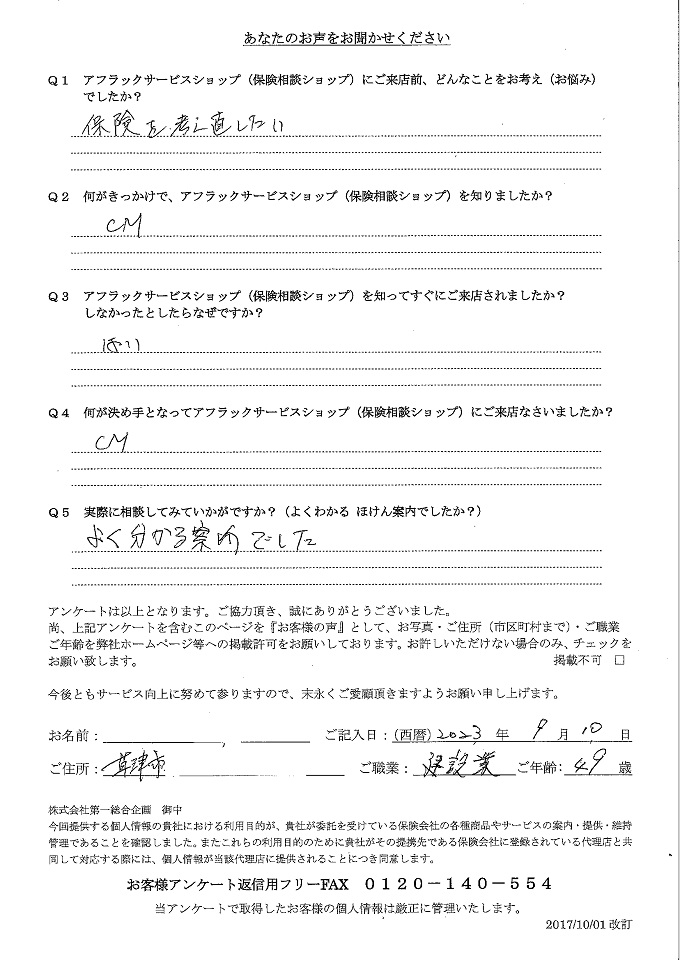 あなたのお声をお聞かせください
Q1 アフラックサービスショップ（保険相談ショップ）にご来店前、どんなことをお考え（お悩み）
でしたか？
保険を考え直したい
Q2 何がきっかけで、アフラックサービスショップ（保険相談ショップ）を知りましたか？
CM
Q3 アフラックサービスショップ（保険相談ショップ）を知ってすぐにご来店されましたか？
しなかったとしたらなぜですか？
はい
Q4 何が決め手となってアフラックサービスショップ（保険相談ショップ）にご来店なさいましたか？
CM
Q5 実際に相談してみていかがですか？（よくわかる ほけん案内でしたか？）
よく分かる案内でした
アンケートは以上となります。ご協力頂き、誠にありがとうございました。
尚、上記アンケートを含むこのページを『お客様の声』として、お写真・ご住所（市区町村まで）・ご職業
ご年齢を弊社ホームページ等への掲載許可をお願いしております。お許しいただけない場合のみ、チェックを
お願い致します。 掲載不可 □
今後ともサービス向上に努めて参りますので、末永くご愛顧頂きますようお願い申し上げます。
お名前： ご記入日：(西暦) 2023 年 9 月 10 日
ご住所：草津市 ご職業：建設業 ご年齢：49 歳
株式会社第一総合企画 御中
今回提供する個人情報の貴社における利用目的が、貴社が委託を受けている保険会社の各種商品やサービスの案内・提供・維持
管理であることを確認しました。またこれらの利用目的のために貴社がその提携先である保険会社に登録されている代理店と共
同して対応する際には、個人情報が当該代理店に提供されることにつき同意します。
お客様アンケート返信用フリーFAX 0120－140－554
当アンケートで取得したお客様の個人情報は厳正に管理いたします。
2017/10/01 改訂